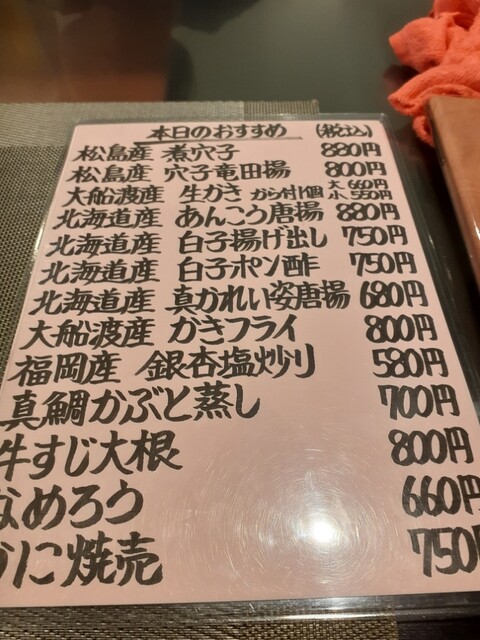 本日のおすすめ (税込)
松島産 煮穴子 880円
松島産 穴子竜田揚 800円
大船渡産 生かき から付1個 大 660円 小 550円
北海道産 あんこう唐揚 880円
北海道産 白子揚げ出し 750円
北海道産 白子ポン酢 750円
北海道産 真かれい姿唐揚 680円
大船渡産 かきフライ 800円
福岡産 銀杏塩炒り 580円
真鯛かぶと蒸し 700円
牛すじ大根 800円
なめろう 660円
かに焼売 750円